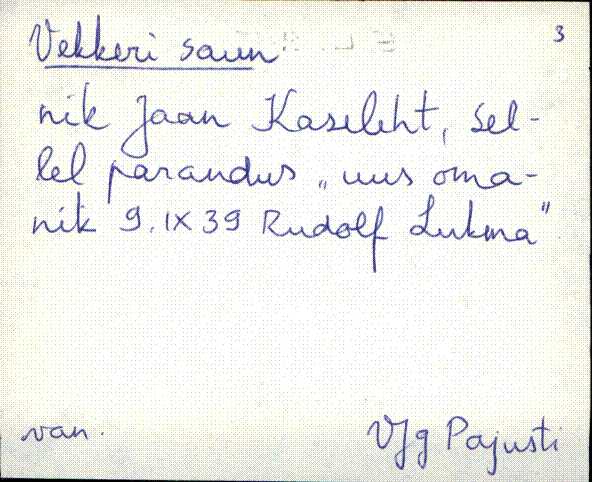 Vekkeri saun 3
nik Jaan Kaseleht, sel-
lel parandus „uus oma-
nik 9. IX 39 Rudolf Lukma"
van. VJg Pajusti